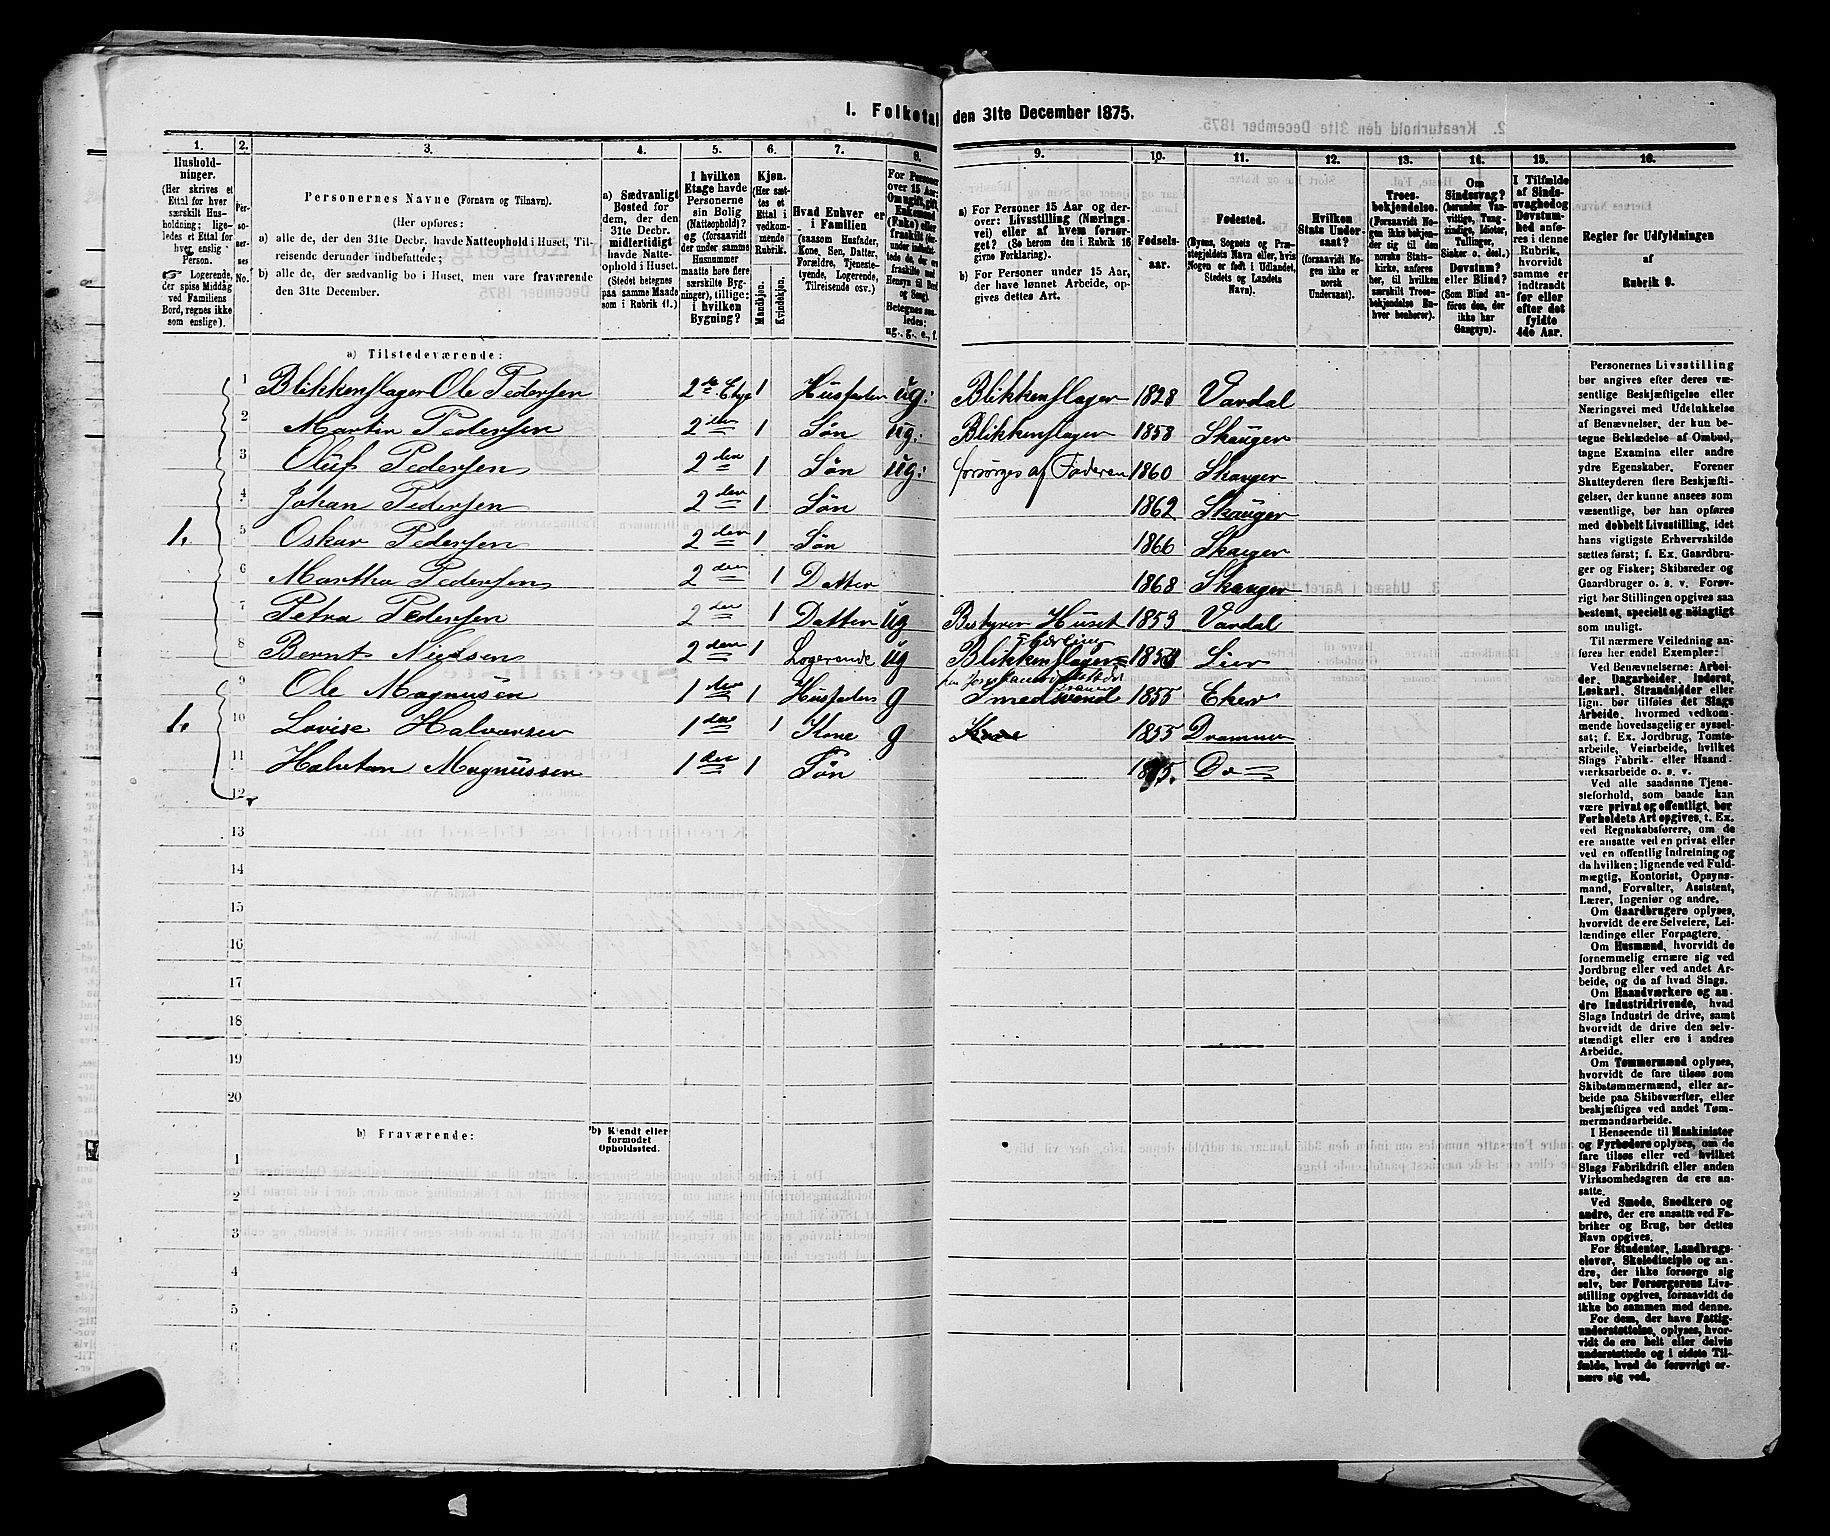 1. Folketal den 31te December 1875.
1. 2. 3. 4. 5. 6. 7. 8. 9. 10. 11. 12. 13. 14. 15. 16.
Husholdninger.
(Her skrives et
Ettal for hver
særskilt Husholdning;
ligeledes et Ettal for
hver enslig
Person.
Logerende,
der spise Middag
ved Familiens
Bord, regnes ikke
som enslige).
Personernes No.
Personernes Navne (Fornavn og Tilnavn).
(Her opføres:
a) alle de, der den 31te Decbr. havde Natteophold i Huset, Tilreisende derunder indbefattede;
b) alle de, der sædvanlig bo i Huset, men vare fraværende
den 31te December.
a) Sædvanligt
Bosted for
dem, der den
31te Decbr.
midlertidigt
havde Natteophold i Huset.
(Stedet betegnes
paa samme Maade
som i Rubrik 11.)
I hvilken
Etage havde
Personerne
sin Bolig
(Natteophold)?
og (forsaavidt
der under samme
Husnummer
maatte høre flere
særskilte Bygninger), tillige:
i hvilken
Bygning?
Kjøn.
(Her sættes et
Ettal i
vedkommende
Rubrik.
Mandkjøn.
Kvindekjøn.
Hvad Enhver er
i Familien
(saasom Husfader,
Kone, Søn, Datter,
Forældre, Tjenestetyende, Logerende,
Tilreisende osv.)
For Personer
over 15 Aar:
Om ugift, gift,
Enkemand
(Enke) eller
fraskilt
Betegnes saaledes:
ug., g., e., f.
a) For Personer 15 Aar og derover: Livsstilling (Næringsvei) eller af hvem forsørget? (Se herom den i Rubrik 16
givne Forklaring).
b) For Personer under 15 Aar,
der have lønnet Arbeide, opgives dettes Art.
Fødselsaar.
Fødested.
(Byens, Sognets og Præstegjeldets Navn eller, hvis
Nogen er født i Udlandet,
Stedets og Landets
Navn).
Hvilken
Stats Undersaat?
(forsaavidt Nogen ikke er
norsk
Undersaat).
Troesbekjendelse.
(Forsaavidt Nogen ikke bekjender sig til den
norske Statskirke, anføres
her, til hvilken
særskilt Troesbekjendelse Enhver henhører).
Om
Sindssvag?
(herunder Vanvittige, Tungsindige, Idioter,
Tullinger,
Sinker o. desl.)
Døvstum?
eller Blind?
(Som Blind anføres den, der
ikke har
Gangsyn).
I Tilfælde
af Sindssvaghed og
Døvstumhed anføres
i denne
Rubrik,
hvorvidt
samme er
indtraadt
før eller
efter det
fyldte
4de Aar.
Regler for Udfyldningen
af
Rubrik 9.
a) Tilstedeværende:
1 Blikkenslager Ole Pedersen 2de Etage 1 Husfader ug: Blikkenslager 1828 Vardal
2 Martin Pedersen 2den 1 Søn ug: Blikkenslager 1858 Skauger
3 Oluf Pedersen 2den 1 Søn ug: forsørges af Faderen 1860 Skauger
4 Johan Pedersen 2den 1 Søn 1862 Skauger
1. 5 Oskar Pedersen 2den 1 Søn 1866 Skauger
6 Martha Pedersen 2den 1 Datter 1868 Skauger
7 Petra Pedersen 2den 1 Datter ug Bestyrer Huset 1853 Vardal
8 Bernt Nielsen 2den 1 Logerende ug Blikkenslager 1853 Lier
9 Ole Magnusen 1den 1 Husfader g Smedsvend 1855 Eker
1. 10 Lovise Halvorsen 1den 1 Kone g 1855 Drammen
11 Halvtan Magnussen 1den 1 Søn 1875. Do
12
13
14
15
16
17
18
19
20
b) Fraværende:
b) Kjendt eller
formodet
Opholdssted.
1
2
3
4
5
6
Personernes Livsstilling
bør angives efter deres væsentlige Beskjæftigelse eller
Næringsvei med Udelukkelse
af Benævnelser, der kun betegne Beklædelse af Ombud,
tagne Examina eller andre
ydre Egenskaber. Forener
Skatteyderen flere Beskjæftigelser, der kunne ansees som
væsentlige, bør han opføres
med dobbelt Livsstilling, idet
hans vigtigste Erhvervskilde
sættes først; f. Ex. Gaardbruger og Fisker; Skibsreder og
Gaardbruger o. s. v. Forøvrigt bør Stillingen opgives saa
bestemt, specielt og nøiagtigt
som muligt.
Til nærmere Veiledning anføres her endel Exempler:
Ved Benævnelserne: Arbeider, Dagarbeider, Inderst,
Løskarl, Strandsidder eller
lign. bør tilføies det Slags
Arbeide, hvormed vedkommende hovedsagelig er sysselsat; f. Ex. Jordbrug, Tomtearbeide, Veiarbeide, hvilket
Slags Fabrik- eller Haandværksarbeide o. s. v.
Ved alle saadanne Tjenesteforhold, som baade kan
være privat og offentligt, bør
Forholdets Art opgives, t. Ex.
ved Regnskabsførere, om de
ere ansatte ved en privat eller
ved en offentlig Indretning og
da hvilken; lignende ved Fuldmægtig, Kontorist, Opsynsmand, Forvalter, Assistent,
Lærer, Ingeniør og andre.
Om Gaardbrugere oplyses,
hvorvidt de ere Selveiere, Leilændinge eller Forpagtere.
Om Husmænd, hvorvidt de
fornemmelig ernære sig ved
Jordbrug eller ved andet Arbeide, og da af hvad Slags.
Om Haandværkere og andre Industridrivende, hvad
Slags Industri de drive, samt
hvorvidt de drive den selvstændigt eller ere i andres
Arbeide.
Om Tømmermænd oplyses,
hvorvidt de fare tilsøs som
Skibstømmermænd, eller arbeide paa Skibsværfter, eller
beskjæftiges ved andet Tømmermandsarbeide.
I Henseende til Maskinister
og Fyrbødere oplyses, om de
fare tilsøs eller ved hvilket
Slags Fabrikdrift eller anden
Virksomhedsgren de ere ansatte.
Ved Smede, Snedkere og
andre, der ere ansatte ved Fabriker og Brug, bør dettes
Navn opgives.
For Studenter, Landbrugselever, Skoledisciple og andre, der ikke forsørge sig
selv, bør Forsørgerens Livsstilling opgives, forsaavidt de
ikke bo sammen med denne.
For dem, der have Fattigunderstøttelse, oplyses, hvorvidt de ere helt eller delvis
understøttede og i sidste Tilfælde, hvad de forøvrigt ernære sig ved.